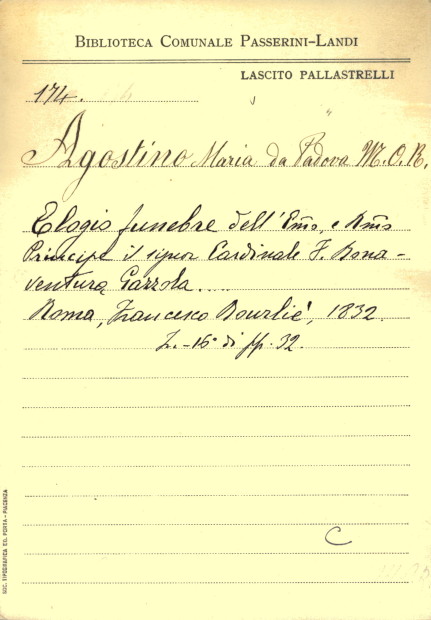 BIBLIOTECA COMUNALE PASSERINI-LANDI
LASCITO PALLASTRELLI
174.
Agostino Maria da Padova M.O.R.
Elogio funebre dell'Em̃o e Rm̃o
Principe il signor Cardinale F. Bona-
ventura Gazzola....
Roma, Francesco Bourlié, 1832.
in-16° di pp. 32.
C
SOC. TIPOGRAFICA ED. PORTA - PIACENZA